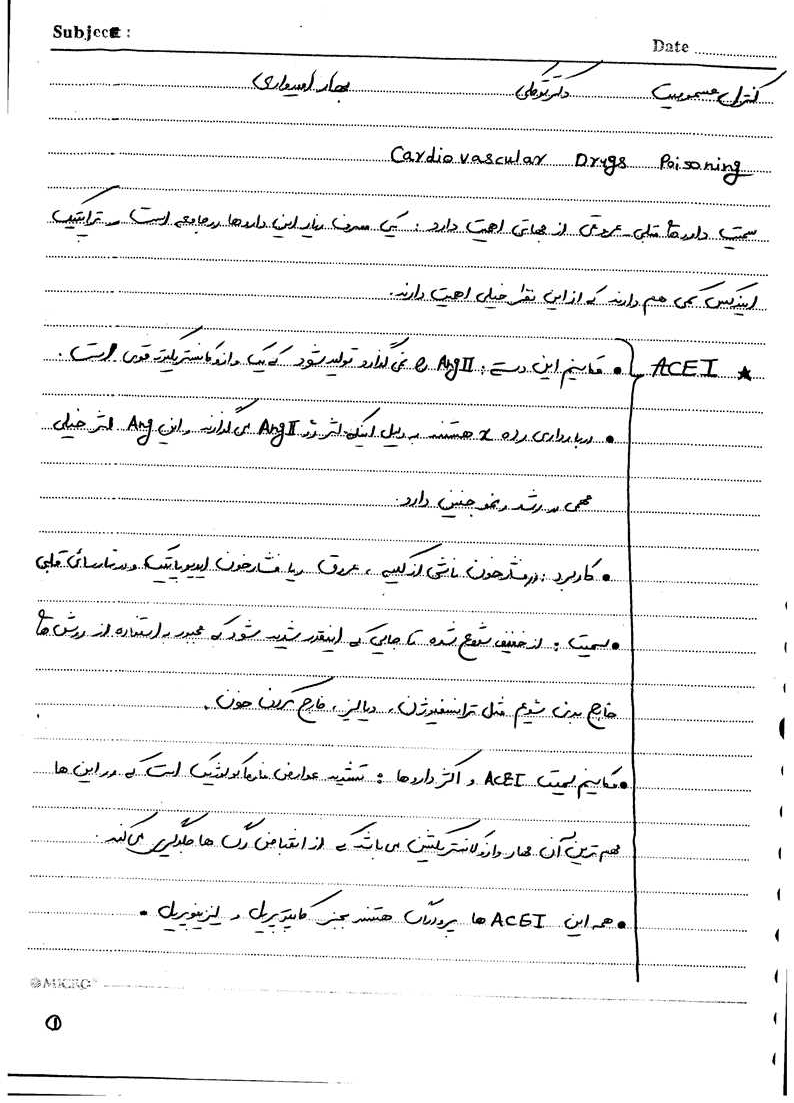 Subject :
Date
کنترل مسمومیت دکتر توکلی بهار امیدواری
Cardiovascular Drugs Poisoning
سمیت داروهای قلبی عروقی از جهاتی اهمیت دارد : یکی مصرف زیاد این داروها در جامعه است و تراپتیک
ایندکس کمی هم دارند که از این نظر خیلی اهمیت دارند.
★ ACEI • مکانیسم این دسته : AngII را نمی گذارد تولید شود که یک وازوکانستریکتور قوی است .
• در بارداری رده x هستند به دلیل اینکه اثر رو AngII می گذارند و این Ang اثر خیلی
مهمی در رشد و نمو جنین دارد.
• کاربرد : در فشارخون ناشی از کلیه ، عروق و یا فشارخون ایدیوپاتیک و در نارسائی قلبی
• سمیت : از خفیف شروع شده تا جایی که اینقدر شدید شود که مجبور به استفاده از روش های
خارج بدنی شویم مثل ترانسفیوژن، دیالیز ، خارج کردن خون .
• مکانیسم سمیت ACEI و اکثر داروها : تشدید عوارض فارماکولوژیک است که در این ها
مهم ترین آن مهار وازوکانستریکشن می باشد که از انقباض رگ ها جلوگیری می کند .
• همه این ACEI ها پرودراگ هستند بجز کاپتوپریل و لیزینوپریل .
MICRO
1